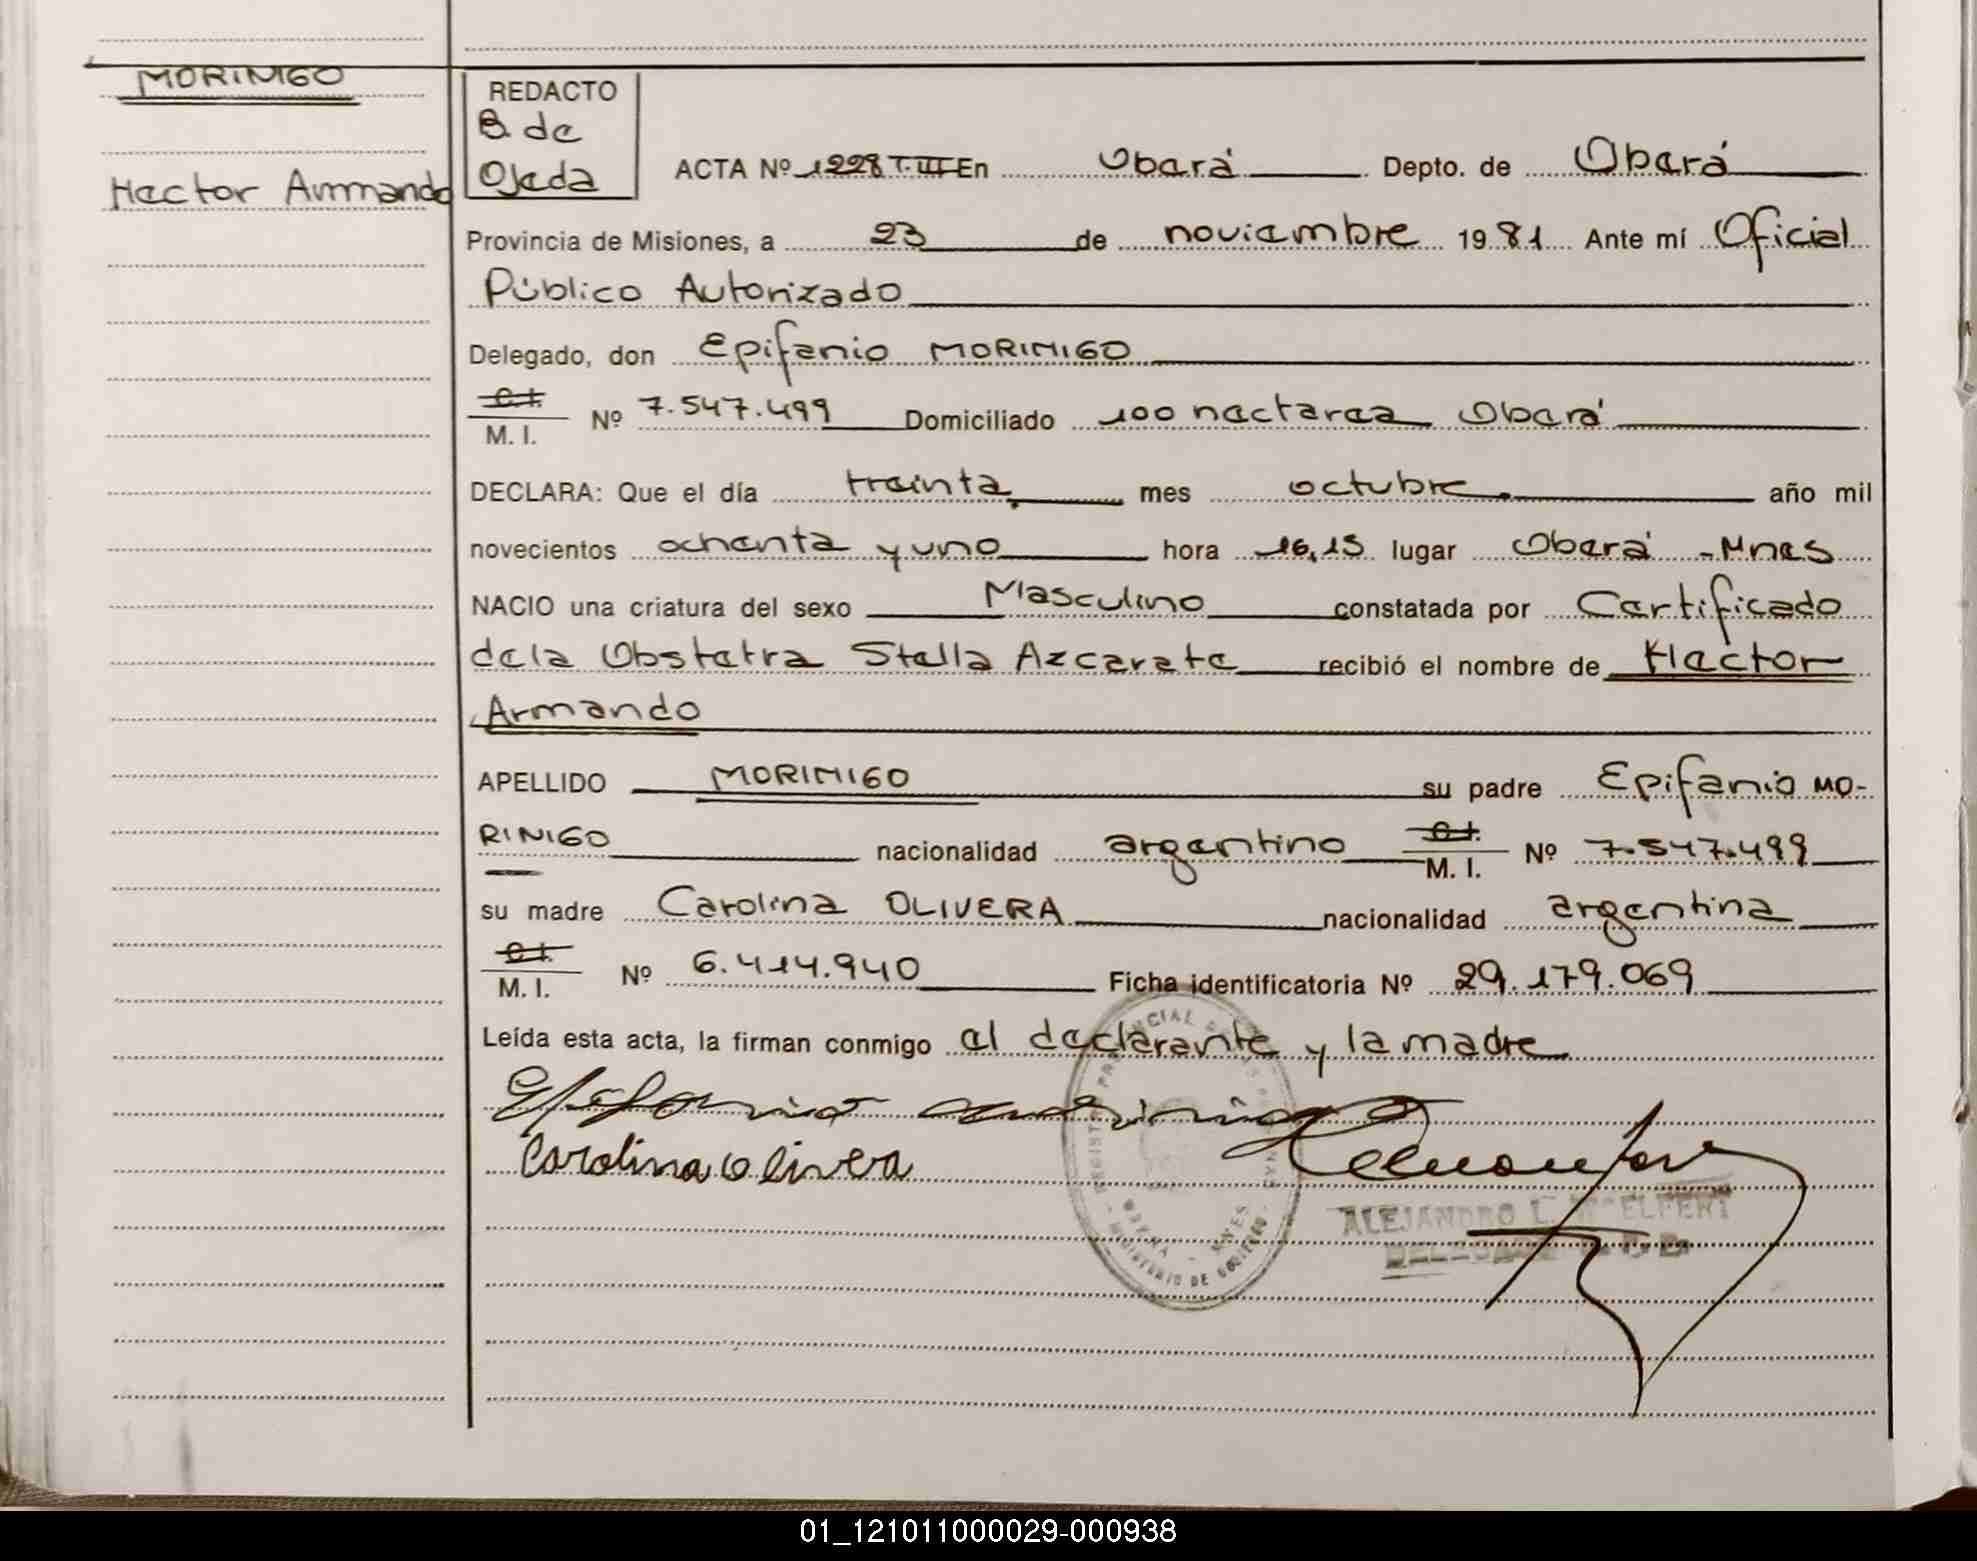 MORINIGO
Hector Armando
REDACTO
B. de
Ojeda
ACTA Nº 1228 T.III En Oberá Depto. de Oberá
Provincia de Misiones, a 23 de noviembre 1981 Ante mí Oficial
Público Autorizado
Delegado, don Epifanio MORINIGO
C.I.
M. I. Nº 7.547.499 Domiciliado 100 hectarea Oberá
DECLARA: Que el día treinta mes octubre año mil
novecientos ochenta y uno hora 16,15 lugar Oberá - Mnes
NACIO una criatura del sexo Masculino constatada por Certificado
de la Obstetra Stella Azcarate recibió el nombre de Hector
Armando
APELLIDO MORINIGO su padre Epifanio MO-
RINIGO nacionalidad argentino C.I. M. I. Nº 7.547.499
su madre Carolina OLIVERA nacionalidad argentina
C.I.
M. I. Nº 6.414.940 Ficha identificatoria Nº 29.179.069
Leída esta acta, la firman conmigo el declarante y la madre
Epifanio moriñigo
Carolina Olivera
ALEJANDRO L. Mc ELFERT
DELEGADO
REGISTRO PROVINCIAL DE LAS PERSONAS
OBERA - MNES
MINISTERIO DE GOBIERNO
01_121011000029-000938